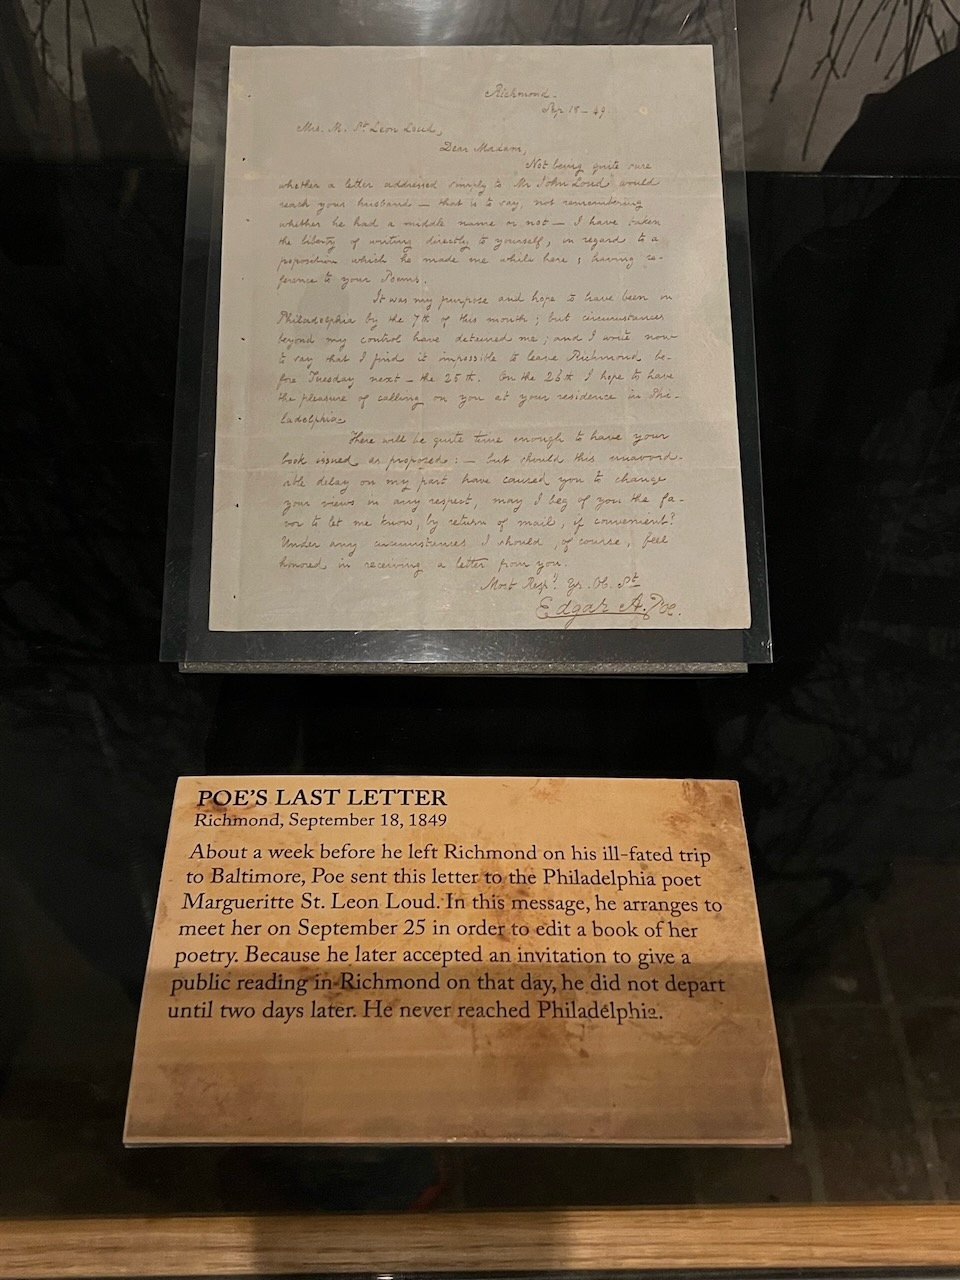 Richmond.
Sep. 18 — 49.
Mrs. M. St. Leon Loud,
Dear Madam,
Not being quite sure
whether a letter addressed simply to Mr John Loud would
reach your husband — that is to say, not remembering
whether he had a middle name or not — I have taken
the liberty of writing directly to yourself, in regard to a
proposition which he made me while here; having re-
ference to your Poems.
It was my purpose and hope to have been in
Philadelphia by the 7th of this month; but circumstances
beyond my control have detained me; and I write now
to say that I find it impossible to leave Richmond be-
fore Tuesday next — the 25th. On the 26th I hope to have
the pleasure of calling on you at your residence in Phi-
ladelphia.
There will be quite time enough to have your
book issued as proposed: — but should this unavoid-
able delay on my part have caused you to change
your views in any respect, may I beg of you the fa-
vor to let me know, by return of mail, if convenient?
Under any circumstances I should, of course, feel
honored in receiving a letter from you.
Most Resply. Yr. Ob. St
Edgar A. Poe.
POE'S LAST LETTER
Richmond, September 18, 1849
About a week before he left Richmond on his ill-fated trip
to Baltimore, Poe sent this letter to the Philadelphia poet
Margueritte St. Leon Loud. In this message, he arranges to
meet her on September 25 in order to edit a book of her
poetry. Because he later accepted an invitation to give a
public reading in Richmond on that day, he did not depart
until two days later. He never reached Philadelphia.